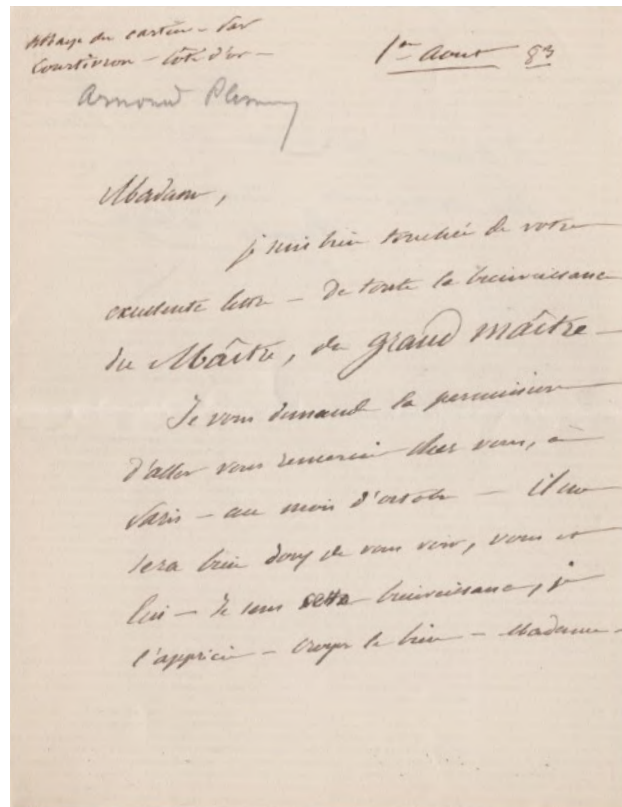 Abbaye du        par
Courtivron – Côte d'or –
1er Aout 83
Armand
Madame,
je suis bien touchée de votre
excellente lettre – De toute la bienveillance
du Maître, du grand maître –
Je vous demande la permission
d'aller vous remercier chez vous, à
Paris – au mois d'octobre – il me
sera bien doux de vous voir, vous et
lui – Je sens cette bienveillance, je
l'apprécie – croyez le bien – Madame –